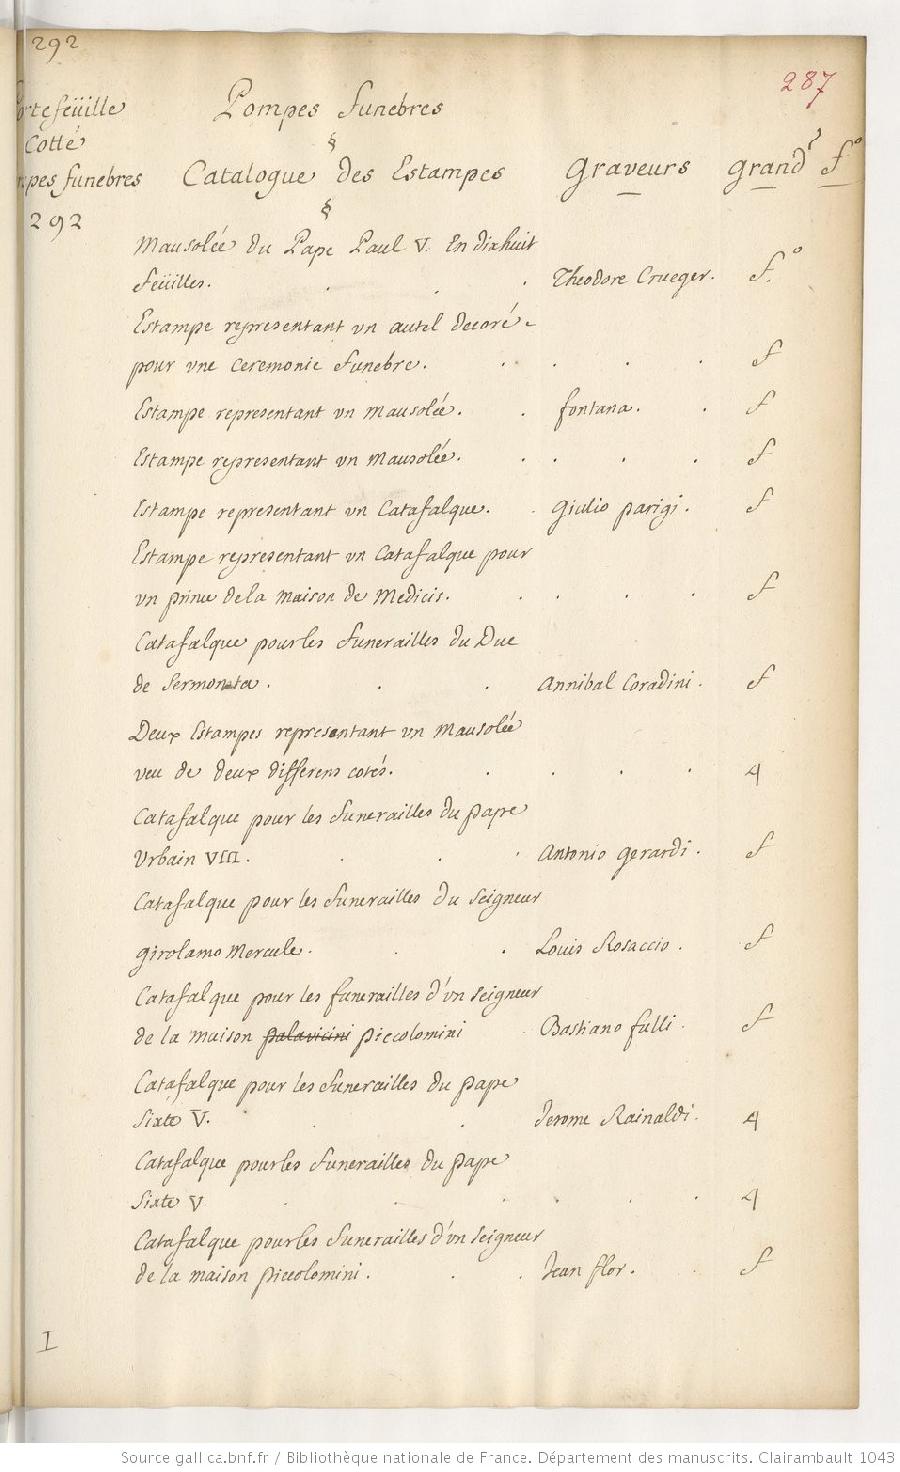 292
287
ortefëuille Pompes funebres
Cotté §
pes funebres Catalogue des Estampes Graveurs grandr fo
292 §
Mausolée du Pape Paul V. En dixhuit
feüilles. Theodore Crueger. f.o
Estampe representant vn autel decoré
pour vne ceremonie funebre. f
Estampe representant vn mausolée. fontana. f
Estampe representant vn mausolée. f
Estampe representant vn Catafalque. Giulio parigi. f
Estampe representant vn Catafalque pour
vn prince de la maison de Medicis. f
Catafalque pour les funerailles du Duc
de Sermoneta. Annibal Coradini. f
Deux Estampes representant vn Mausolée
veu de deux differens cotés. 4
Catafalque pour les funerailles du pape
Urbain VIII. Antonio Gerardi. f
Catafalque pour les funerailles du Seigneur
girolamo Mercule. Louis Rosaccio. f
Catafalque pour les funerailles d'vn Seigneur
de la maison palavicini piccolomini Bastiano fulli. f
Catafalque pour les funerailles du pape
Sixte V. Jerome Rainaldi. 4
Catafalque pour les funerailles du pape
Sixte V 4
Catafalque pour les funerailles d'vn Seigneur
de la maison piccolomini. Jean flor. f
I
Source gallica.bnf.fr / Bibliothèque nationale de France. Département des manuscrits. Clairambault 1043